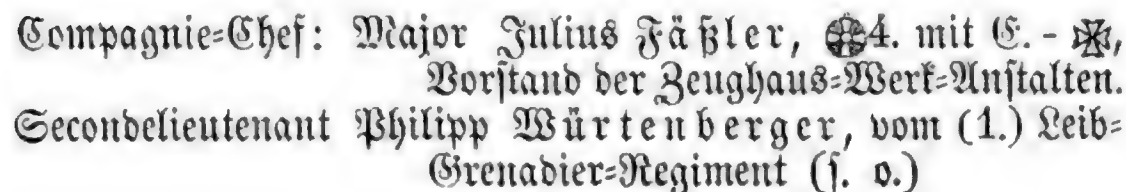 Compagnie=Chef: Major Julius Fäßler, 4. mit E. - ,
Vorstand der Zeughaus=Werk=Anstalten.
Secondelieutenant Philipp Würtenberger, vom (1.) Leib=
Grenadier=Regiment (s. o.)